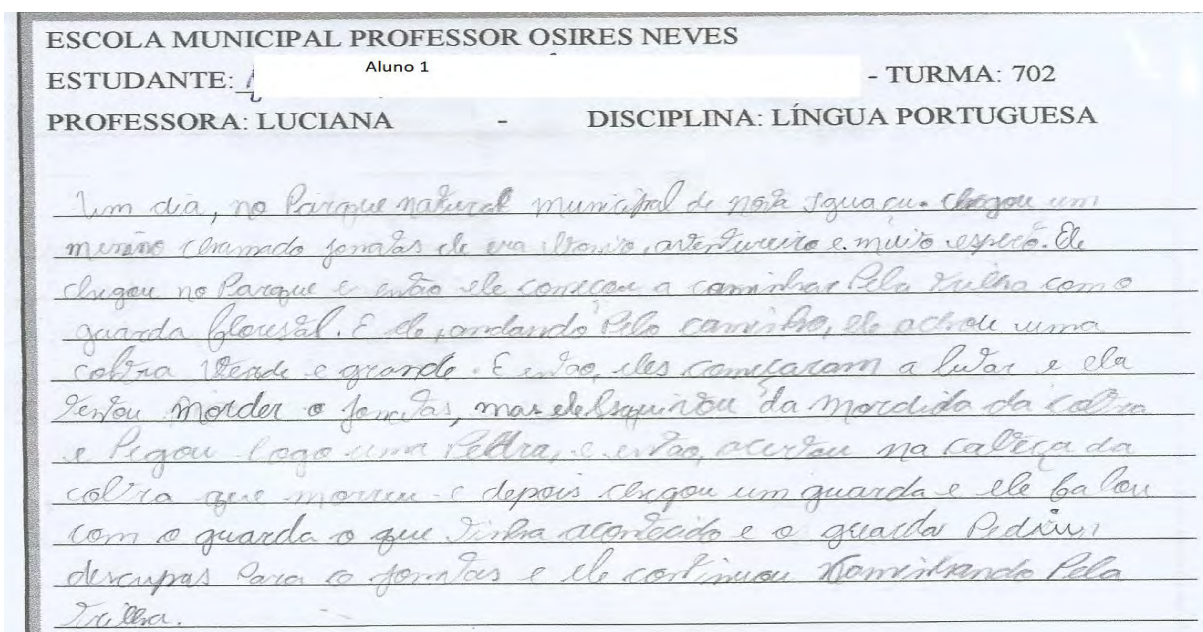 ESCOLA MUNICIPAL PROFESSOR OSIRES NEVES
ESTUDANTE: Aluno 1 - TURMA: 702
PROFESSORA: LUCIANA - DISCIPLINA: LÍNGUA PORTUGUESA
Um dia, no Parque natural municipal de nova Iguaçu. chegou um
menino chamado jonatas ele era aventureiro e muito esperto. Ele
chegou no Parque e então ele começou a caminhar Pela trilha como
guarda florestal. E ele, andando Pelo caminho, ele achou uma
cobra verde e grande. E então, eles começaram a lutar e ela
tentou morder o jonatas, mas ele da mordida da cobra
e Pegou logo uma Pedra, e então, acertou na cabeça da
cobra que morreu e depois chegou um guarda e ele falou
com o guarda o que tinha acontecido e o guarda Pediu
descupas Para o jonatas e ele continuou Pela
trilha.